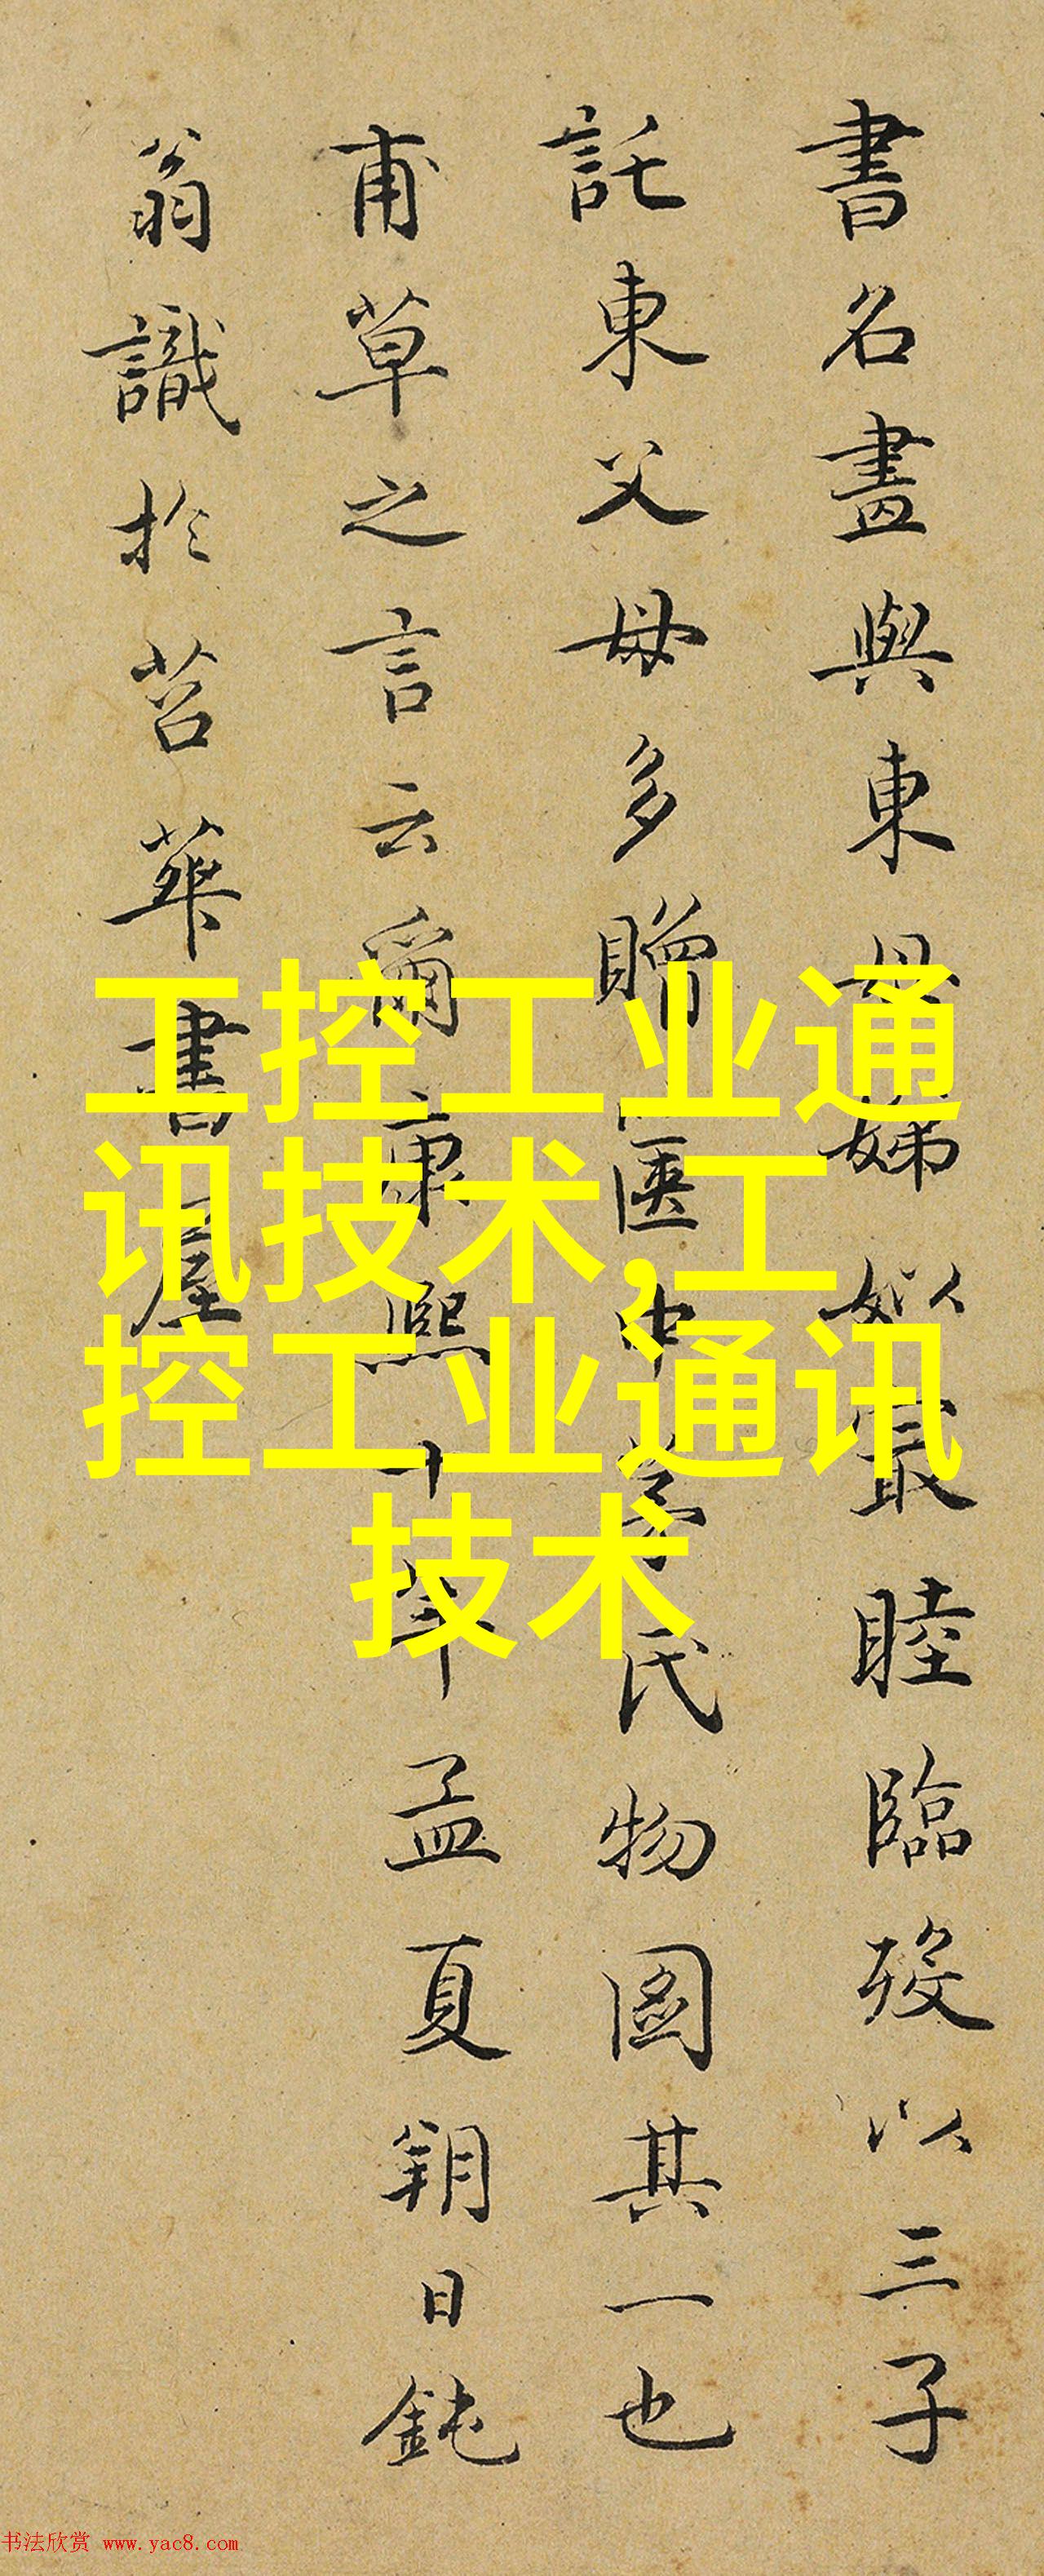 書名畫與東母娣姒最睦臨歿以三子
託東父母多贈匧中李氏物圖其一也
甫草之言云爾康熙十年孟夏朔日鈍
翁識於苕華書屋
工控工业通
讯技术,工
控工业通讯
技术
书法欣赏 www.yac8.com